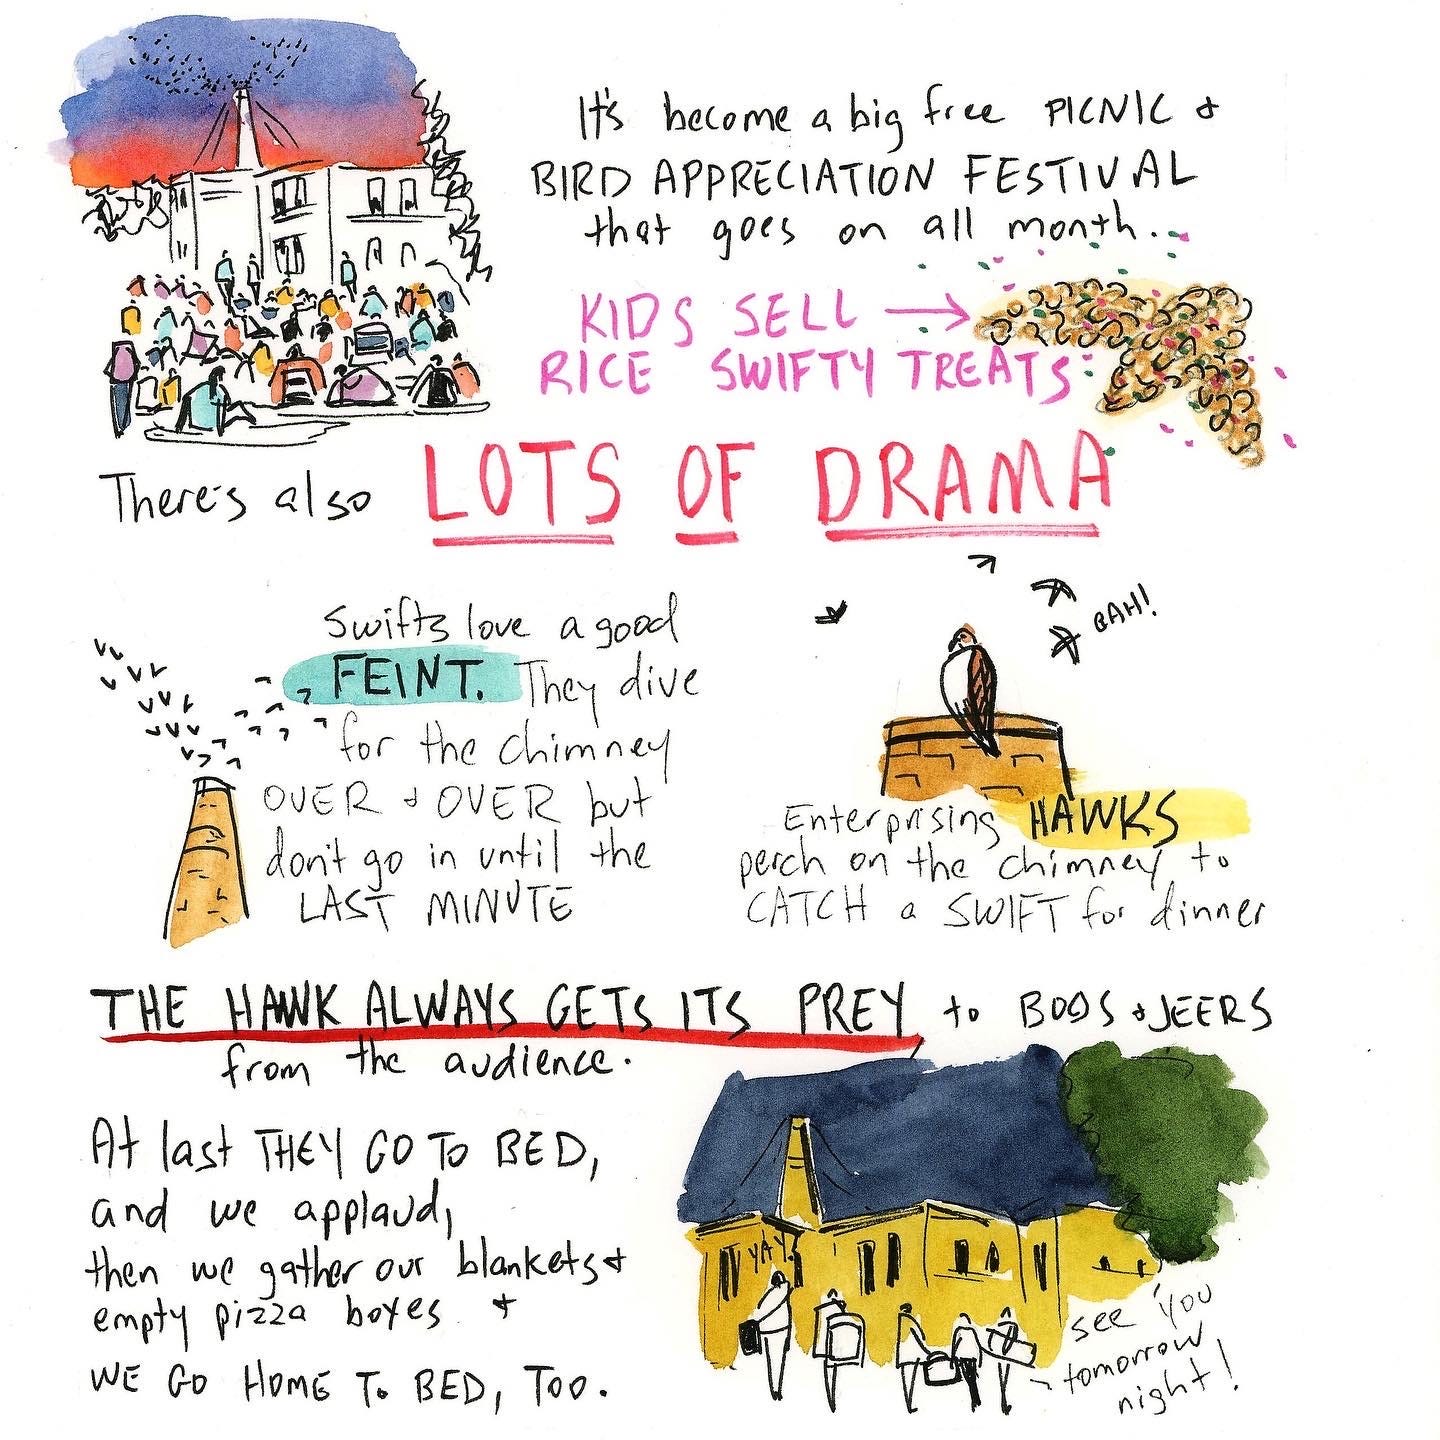 It's become a big free PICNIC &
BIRD APPRECIATION FESTIVAL
that goes on all month.
KIDS SELL →
RICE SWIFTY TREATS
There's also LOTS OF DRAMA
Swifts love a good
FEINT. They dive
for the chimney
OVER & OVER but
don't go in until the
LAST MINUTE
BAH!
Enterprising HAWKS
perch on the chimney to
CATCH a SWIFT for dinner
THE HAWK ALWAYS GETS ITS PREY to BOOS & JEERS
from the audience.
At last THEY GO TO BED,
and we applaud,
then we gather our blankets &
empty pizza boxes &
WE GO HOME To BED, Too.
YAY
see you
tomorrow
night!